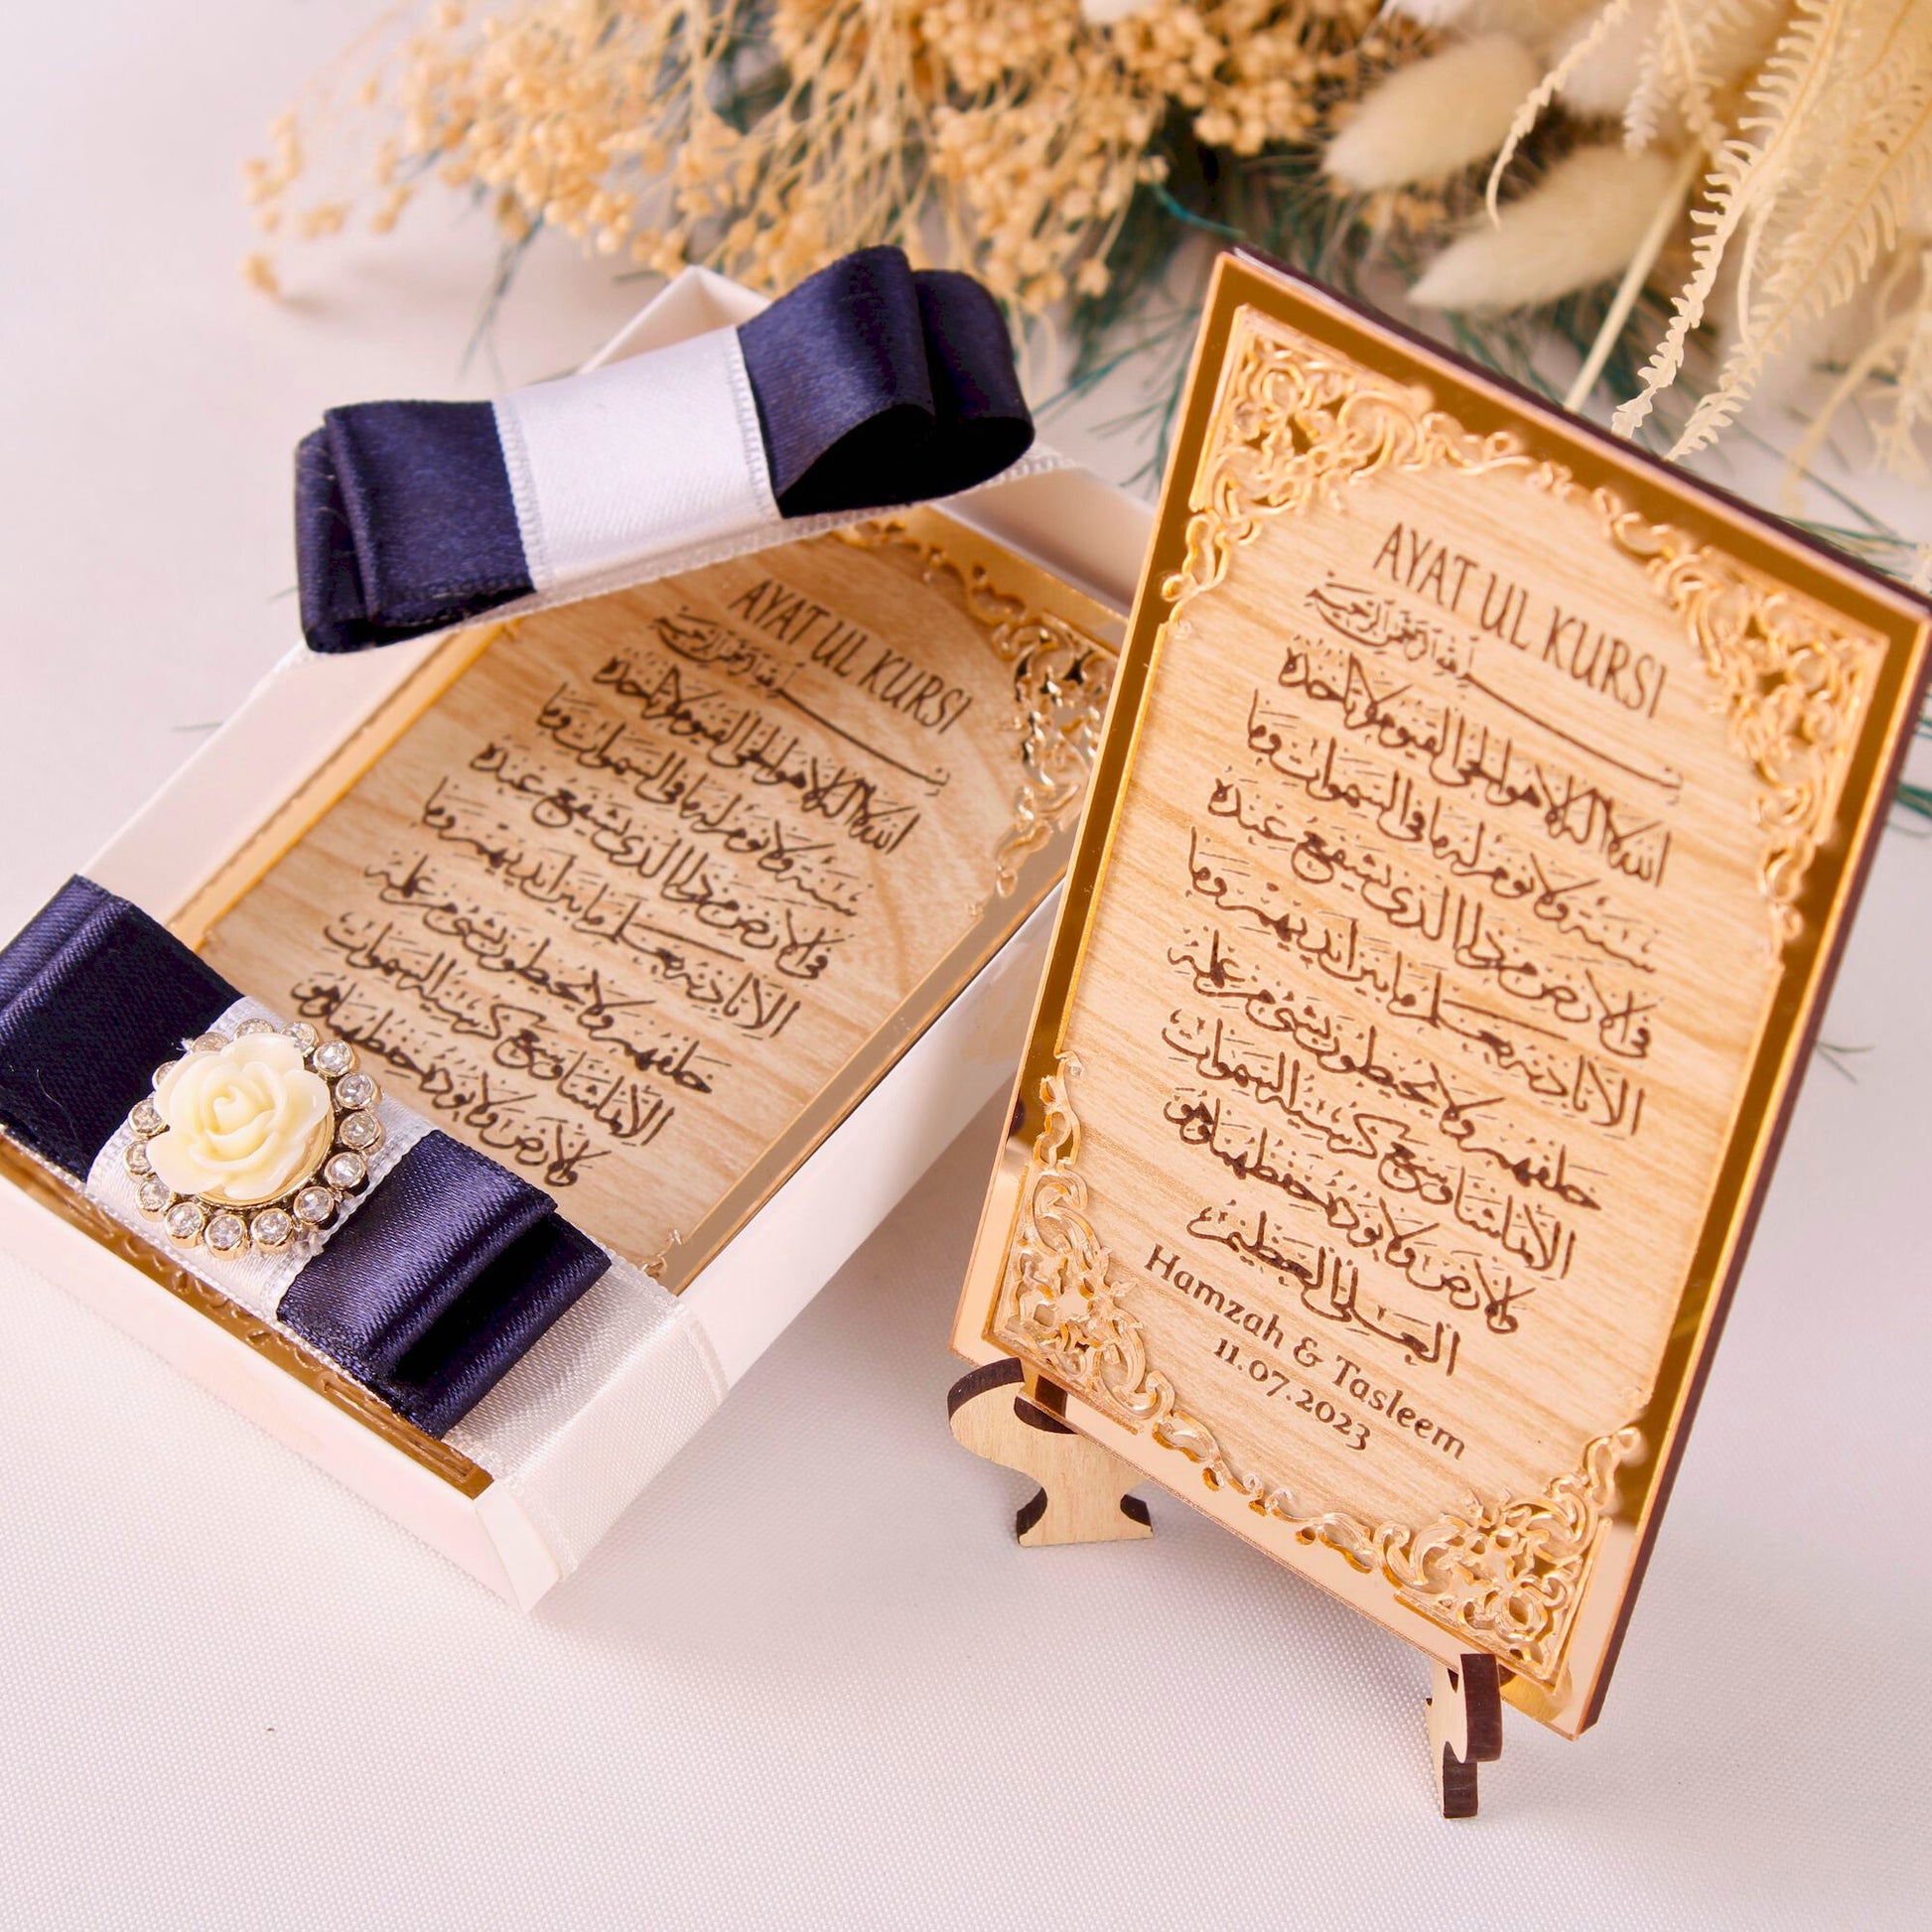 AYAT UL KURSI
بسم الله الرحمن الرحيم
الله لا اله الا هو الحي القيوم لا تأخذه
سنة ولا نوم له ما في السموات وما
في الارض من ذا الذي يشفع عنده
الا باذنه يعلم ما بين ايديهم وما
خلفهم ولا يحيطون بشيء من علمه
الا بما شاء وسع كرسيه السموات
والارض ولا يؤده حفظهما وهو
العلي العظيم
AYAT UL KURSI
بسم الله الرحمن الرحيم
الله لا اله الا هو الحي القيوم لا تأخذه
سنة ولا نوم له ما في السموات وما
في الارض من ذا الذي يشفع عنده
الا باذنه يعلم ما بين ايديهم وما
خلفهم ولا يحيطون بشيء من علمه
الا بما شاء وسع كرسيه السموات
والارض ولا يؤده حفظهما وهو
Hamzah & Tasleem
11.07.2023